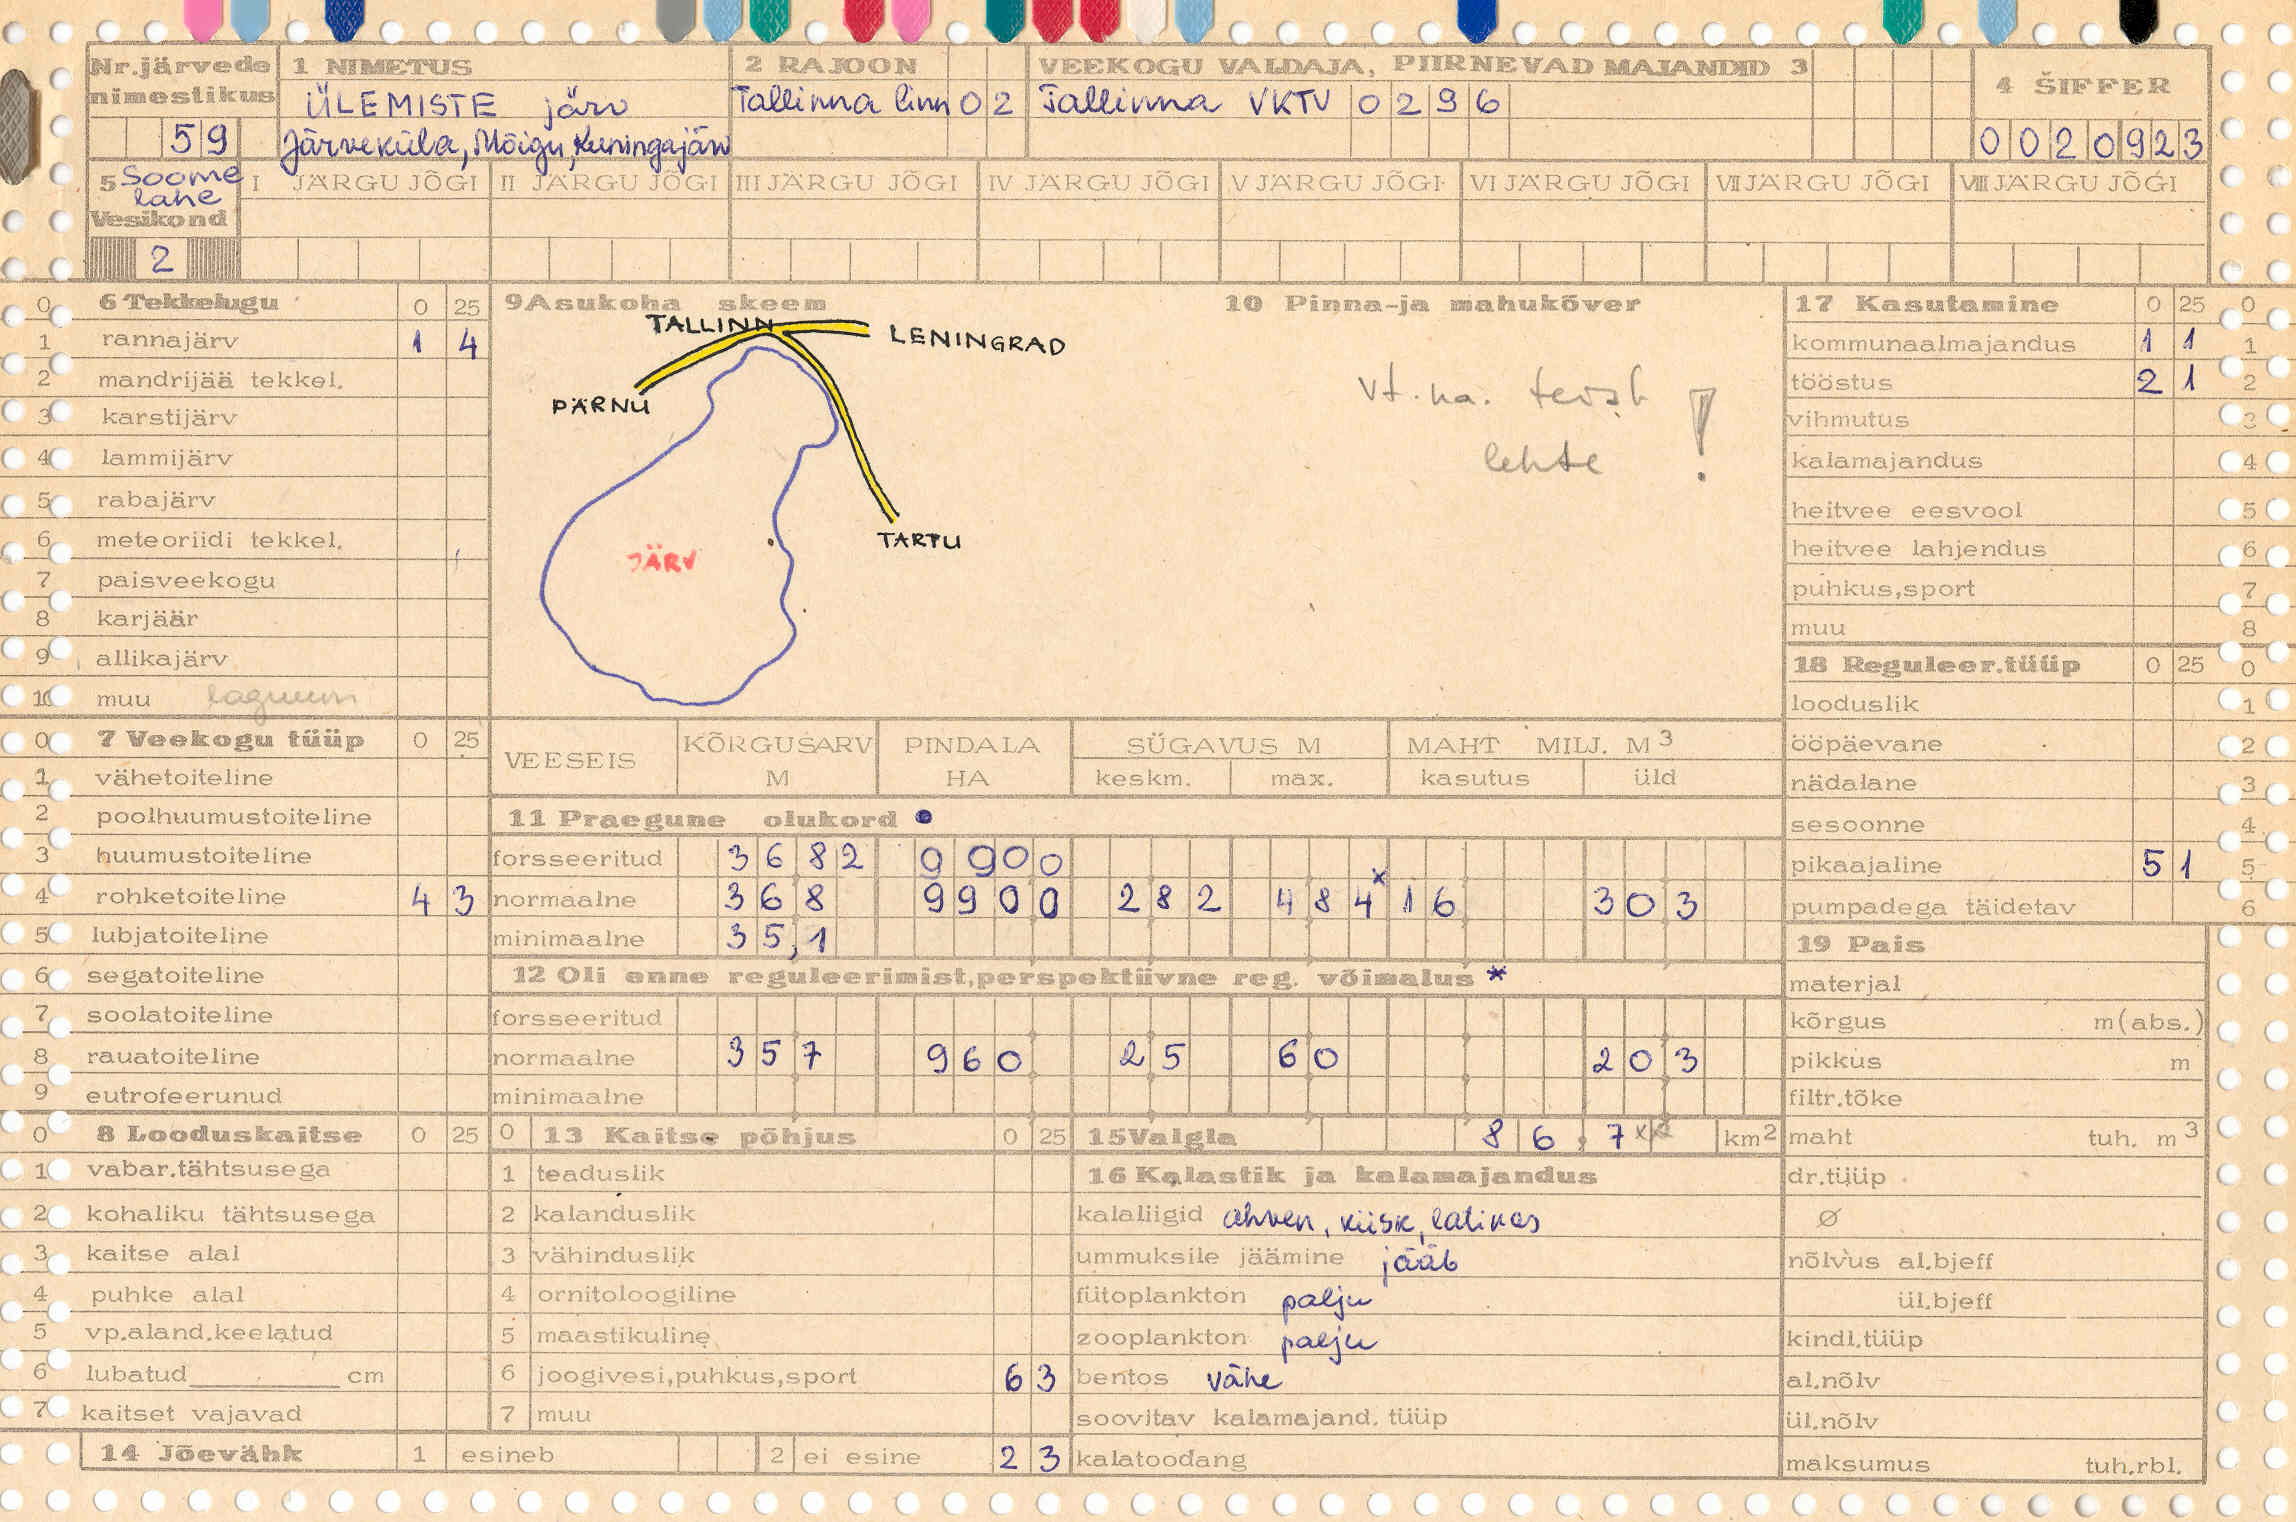 Nr.järvede nimestikus
59
1 NIMETUS
ÜLEMISTE järv
Järveküla, Mõigu, Kuningajärv
2 RAJOON
Tallinna linn 02
VEEKOGU VALDAJA, PIIRNEVAD MAJANDID 3
Tallinna VKTV 0296
4 ŠIFFER
0020923
5 Soome lahe
Vesikond
2
I JÄRGU JÕGI
II JÄRGU JÕGI
III JÄRGU JÕGI
IV JÄRGU JÕGI
V JÄRGU JÕGI
VI JÄRGU JÕGI
VII JÄRGU JÕGI
VIII JÄRGU JÕGI
0 6 Tekkelugu 0 25
1 rannajärv 1 4
2 mandrijää tekkel.
3 karstijärv
4 lammijärv
5 rabajärv
6 meteoriidi tekkel.
7 paisveekogu
8 karjäär
9 allikajärv
10 muu laguun
0 7 Veekogu tüüp 0 25
1 vähetoiteline
2 poolhuumustoiteline
3 huumustoiteline
4 rohketoiteline 4 3
5 lubjatoiteline
6 segatoiteline
7 soolatoiteline
8 rauatoiteline
9 eutrofeerunud
0 8 Looduskaitse 0 25
1 vabar.tähtsusega
2 kohaliku tähtsusega
3 kaitse alal
4 puhke alal
5 vp.aland.keelatud
6 lubatud__________cm
7 kaitset vajavad
14 Jõevähk 1 esineb 2 ei esine 2 3
9 Asukoha skeem
TALLINN
LENINGRAD
PÄRNU
TARTU
JÄRV
10 Pinna-ja mahukõver
Vt. ka. teist
lehte !
VEESEIS
KÕRGUSARV M
PINDALA HA
SÜGAVUS M
keskm. max.
MAHT MILJ. M3
kasutus üld
11 Praegune olukord •
forsseeritud 3682 9900
normaalne 368 9900 282 484x 16 303
minimaalne 35,1
12 Oli enne reguleerimist,perspektiivne reg. võimalus *
forsseeritud
normaalne 357 960 25 60 203
minimaalne
0 13 Kaitse põhjus 0 25
1 teaduslik
2 kalanduslik
3 vähinduslik
4 ornitoloogiline
5 maastikuline
6 joogivesi,puhkus,sport 6 3
7 muu
15 Valgla 86,7xx km2
16 Kalastik ja kalamajandus
kalaliigid ahven, kiisk, latikas
ummuksile jäämine jääb
fütoplankton palju
zooplankton palju
bentos vähe
soovitav kalamajand. tüüp
kalatoodang
17 Kasutamine 0 25 0
kommunaalmajandus 1 1 1
tööstus 2 1 2
vihmutus 3
kalamajandus 4
heitvee eesvool 5
heitvee lahjendus 6
puhkus,sport 7
muu 8
18 Reguleer.tüüp 0 25 0
looduslik 1
ööpäevane 2
nädalane 3
sesoonne 4
pikaajaline 5 1 5
pumpadega täidetav 6
19 Pais
materjal
kõrgus m(abs.)
pikkus m
filtr.tõke
maht tuh. m3
dr.tüüp
Ø
nõlvus al.bjeff
ül.bjeff
kindl.tüüp
al.nõlv
ül.nõlv
maksumus tuh.rbl.